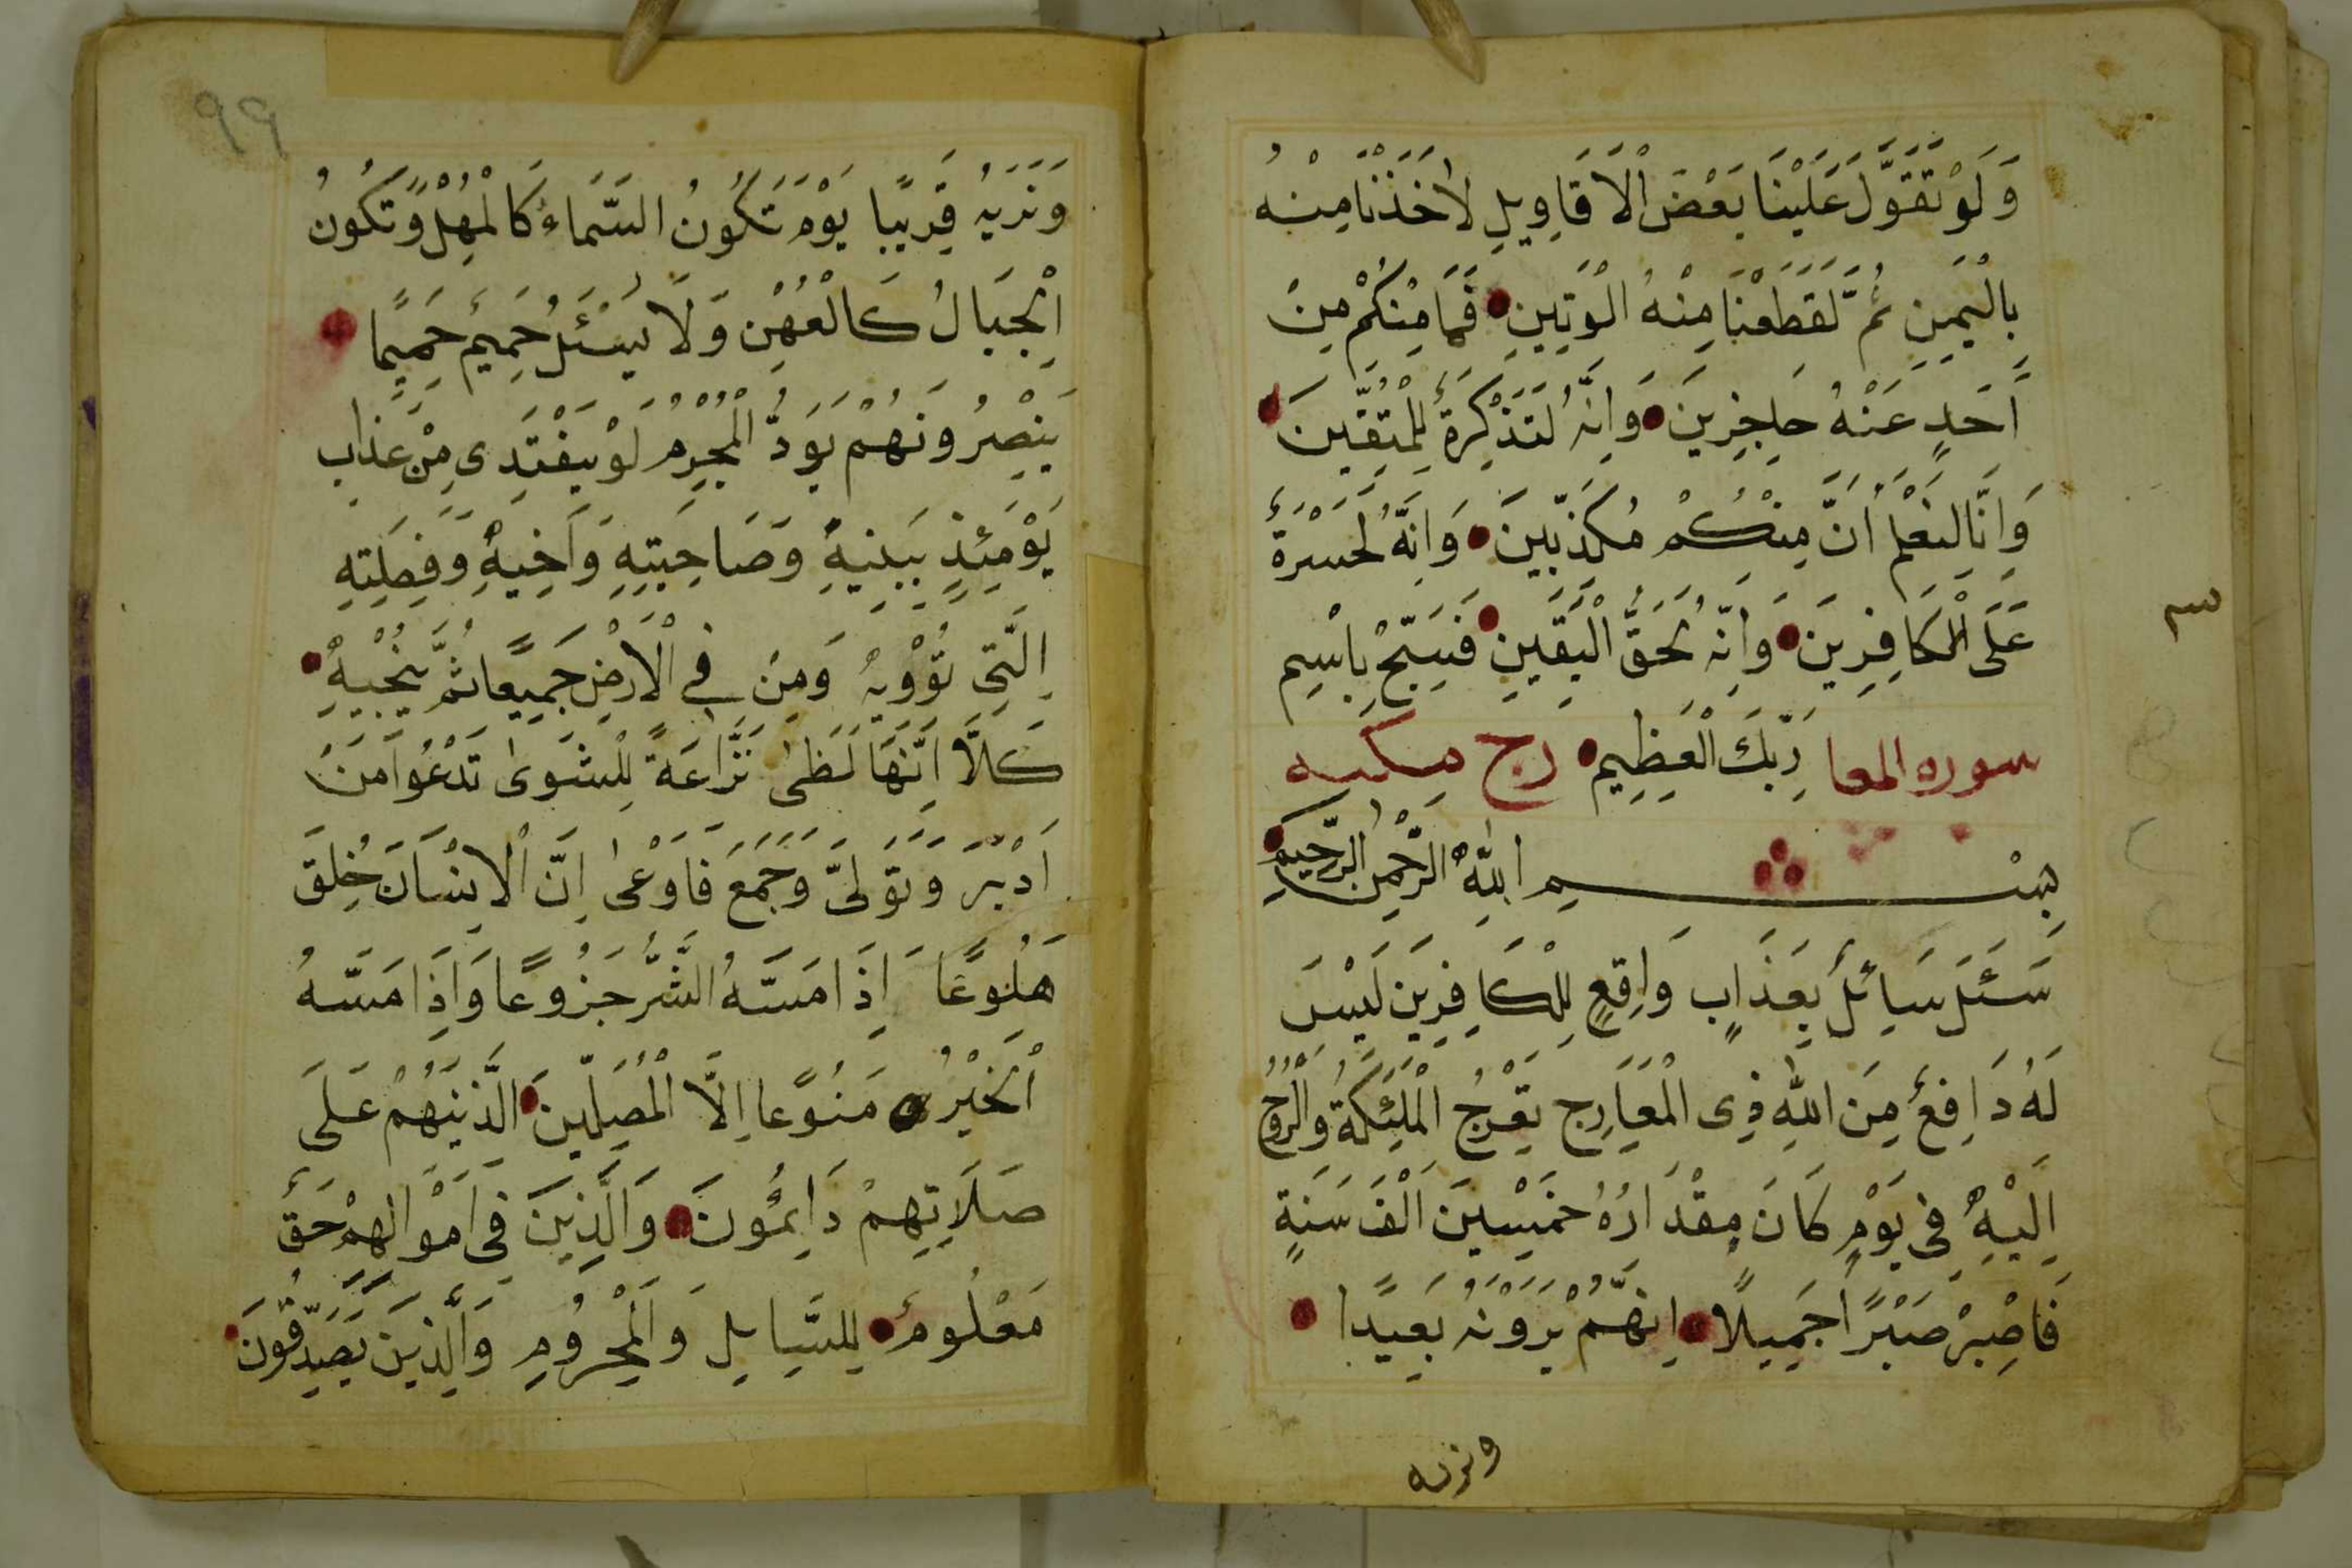 وَلَوْ تَقَوَّلَ عَلَيْنَا بَعْضَ الْاَقَاوِيلِ لَاَخَذْنَا مِنْهُ
بِالْيَمِينِ ثُمَّ لَقَطَعْنَا مِنْهُ الْوَتِينِ فَمَا مِنْكُمْ مِنْ
اَحَدٍ عَنْهُ حَاجِزِينَ وَاِنَّهُ لَتَذْكِرَةٌ لِلْمُتَّقِينَ
وَاِنَّا لَنَعْلَمُ اَنَّ مِنْكُمْ مُكَذِّبِينَ وَاِنَّهُ لَحَسْرَةٌ
عَلَى الْكَافِرِينَ وَاِنَّهُ لَحَقُّ الْيَقِينِ فَسَبِّحْ بِاسْمِ
سوره المعا رَبِّكَ الْعَظِيمِ رج مكيه
بِسْمِ اللهِ الرَّحْمٰنِ الرَّحِيمِ
سَئَلَ سَائِلٌ بِعَذَابٍ وَاقِعٍ لِلْكَافِرِينَ لَيْسَ
لَهُ دَافِعٌ مِنَ اللهِ ذِى الْمَعَارِجِ تَعْرُجُ الْمَلٰئِكَةُ وَالرُّوحُ
اِلَيْهِ فِى يَوْمٍ كَانَ مِقْدَارُهُ خَمْسِينَ اَلْفَ سَنَةٍ
فَاصْبِرْ صَبْرًا جَمِيلًا اِنَّهُمْ يَرَوْنَهُ بَعِيدًا
ونريه
٩٩
وَنَرَيهُ قَرِيبًا يَوْمَ تَكُونُ السَّمَاءُ كَالْمُهْلِ وَتَكُونُ
الْجِبَالُ كَالْعِهْنِ وَلَا يَسْئَلُ حَمِيمٌ حَمِيمًا
يُبَصَّرُونَهُمْ يَوَدُّ الْمُجْرِمُ لَوْ يَفْتَدِى مِنْ عَذَابِ
يَوْمَئِذٍ بِبَنِيهِ وَصَاحِبَتِهِ وَاَخِيهِ وَفَصِيلَتِهِ
الَّتِى تُؤْوِيهِ وَمَنْ فِى الْاَرْضِ جَمِيعًا ثُمَّ يُنْجِيهِ
كَلَّا اِنَّهَا لَظٰى نَزَّاعَةً لِلشَّوٰى تَدْعُوا مَنْ
اَدْبَرَ وَتَوَلّٰى وَجَمَعَ فَاَوْعٰى اِنَّ الْاِنْسَانَ خُلِقَ
هَلُوعًا اِذَا مَسَّهُ الشَّرُّ جَزُوعًا وَاِذَا مَسَّهُ
الْخَيْرُ مَنُوعًا اِلَّا الْمُصَلِّينَ الَّذِينَ هُمْ عَلَى
صَلَاتِهِمْ دَائِمُونَ وَالَّذِينَ فِى اَمْوَالِهِمْ حَقٌّ
مَعْلُومٌ لِلسَّايِلِ وَالْمَحْرُومِ وَالَّذِينَ يُصَدِّقُونَ